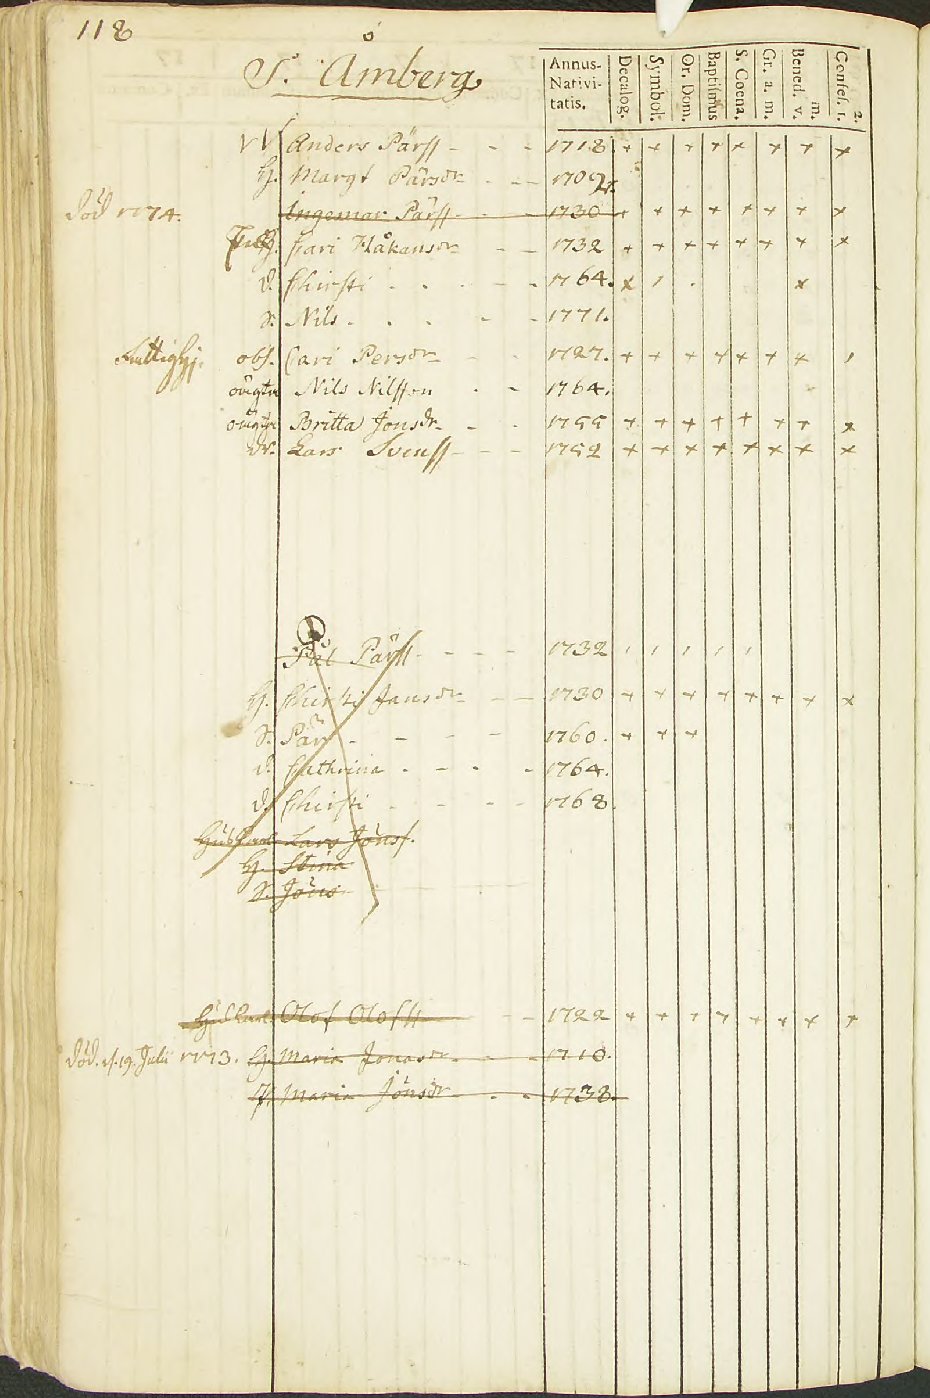 118
S. Åmberg
Annus Nativitatis. Decalog. Symbol. Or. Dom. Baptismus S. Coena. Gr. a. m. Bened. v. m. Confes. 1. 2.
Anders Pärss - - - 1718. + + + + + + + +
H. Margt Pärsdr - - - 1702.
död 1774. Ingemar Pärss - - - 1730 + + + + + + + +
H. Cari Håkansdr - - 1732 + + + + + + + +
d. Chirsti - - - - - 1764. x / . x
S. Nils - - - - - 1771.
Fattighj. obs. Cari Persdr - - 1727. + + + + + + + /
Nils Nilsson - - 1764.
Britta Jonsdr - - 1755 + + + + + + + +
dr. Lars Svenss - - - 1752 + + + + + + + +
Pål Pärss - - - - 1732 / / / / /
H. Chirsti Jansdr - - 1730 + + + + + + + +
S. Pär - - - - 1760. + + +
d. Cathrina - - - - 1764.
d. Chirsti - - - - 1768.
Lars Jönss.
H. Stina
S. Jöns
Olof Olofss - - 1722 + + + + + + + +
död. d. 19. Julii 1773. H. Maria Jonasdr - - - 1710.
P. Maria Jönsdr - - - 1738.